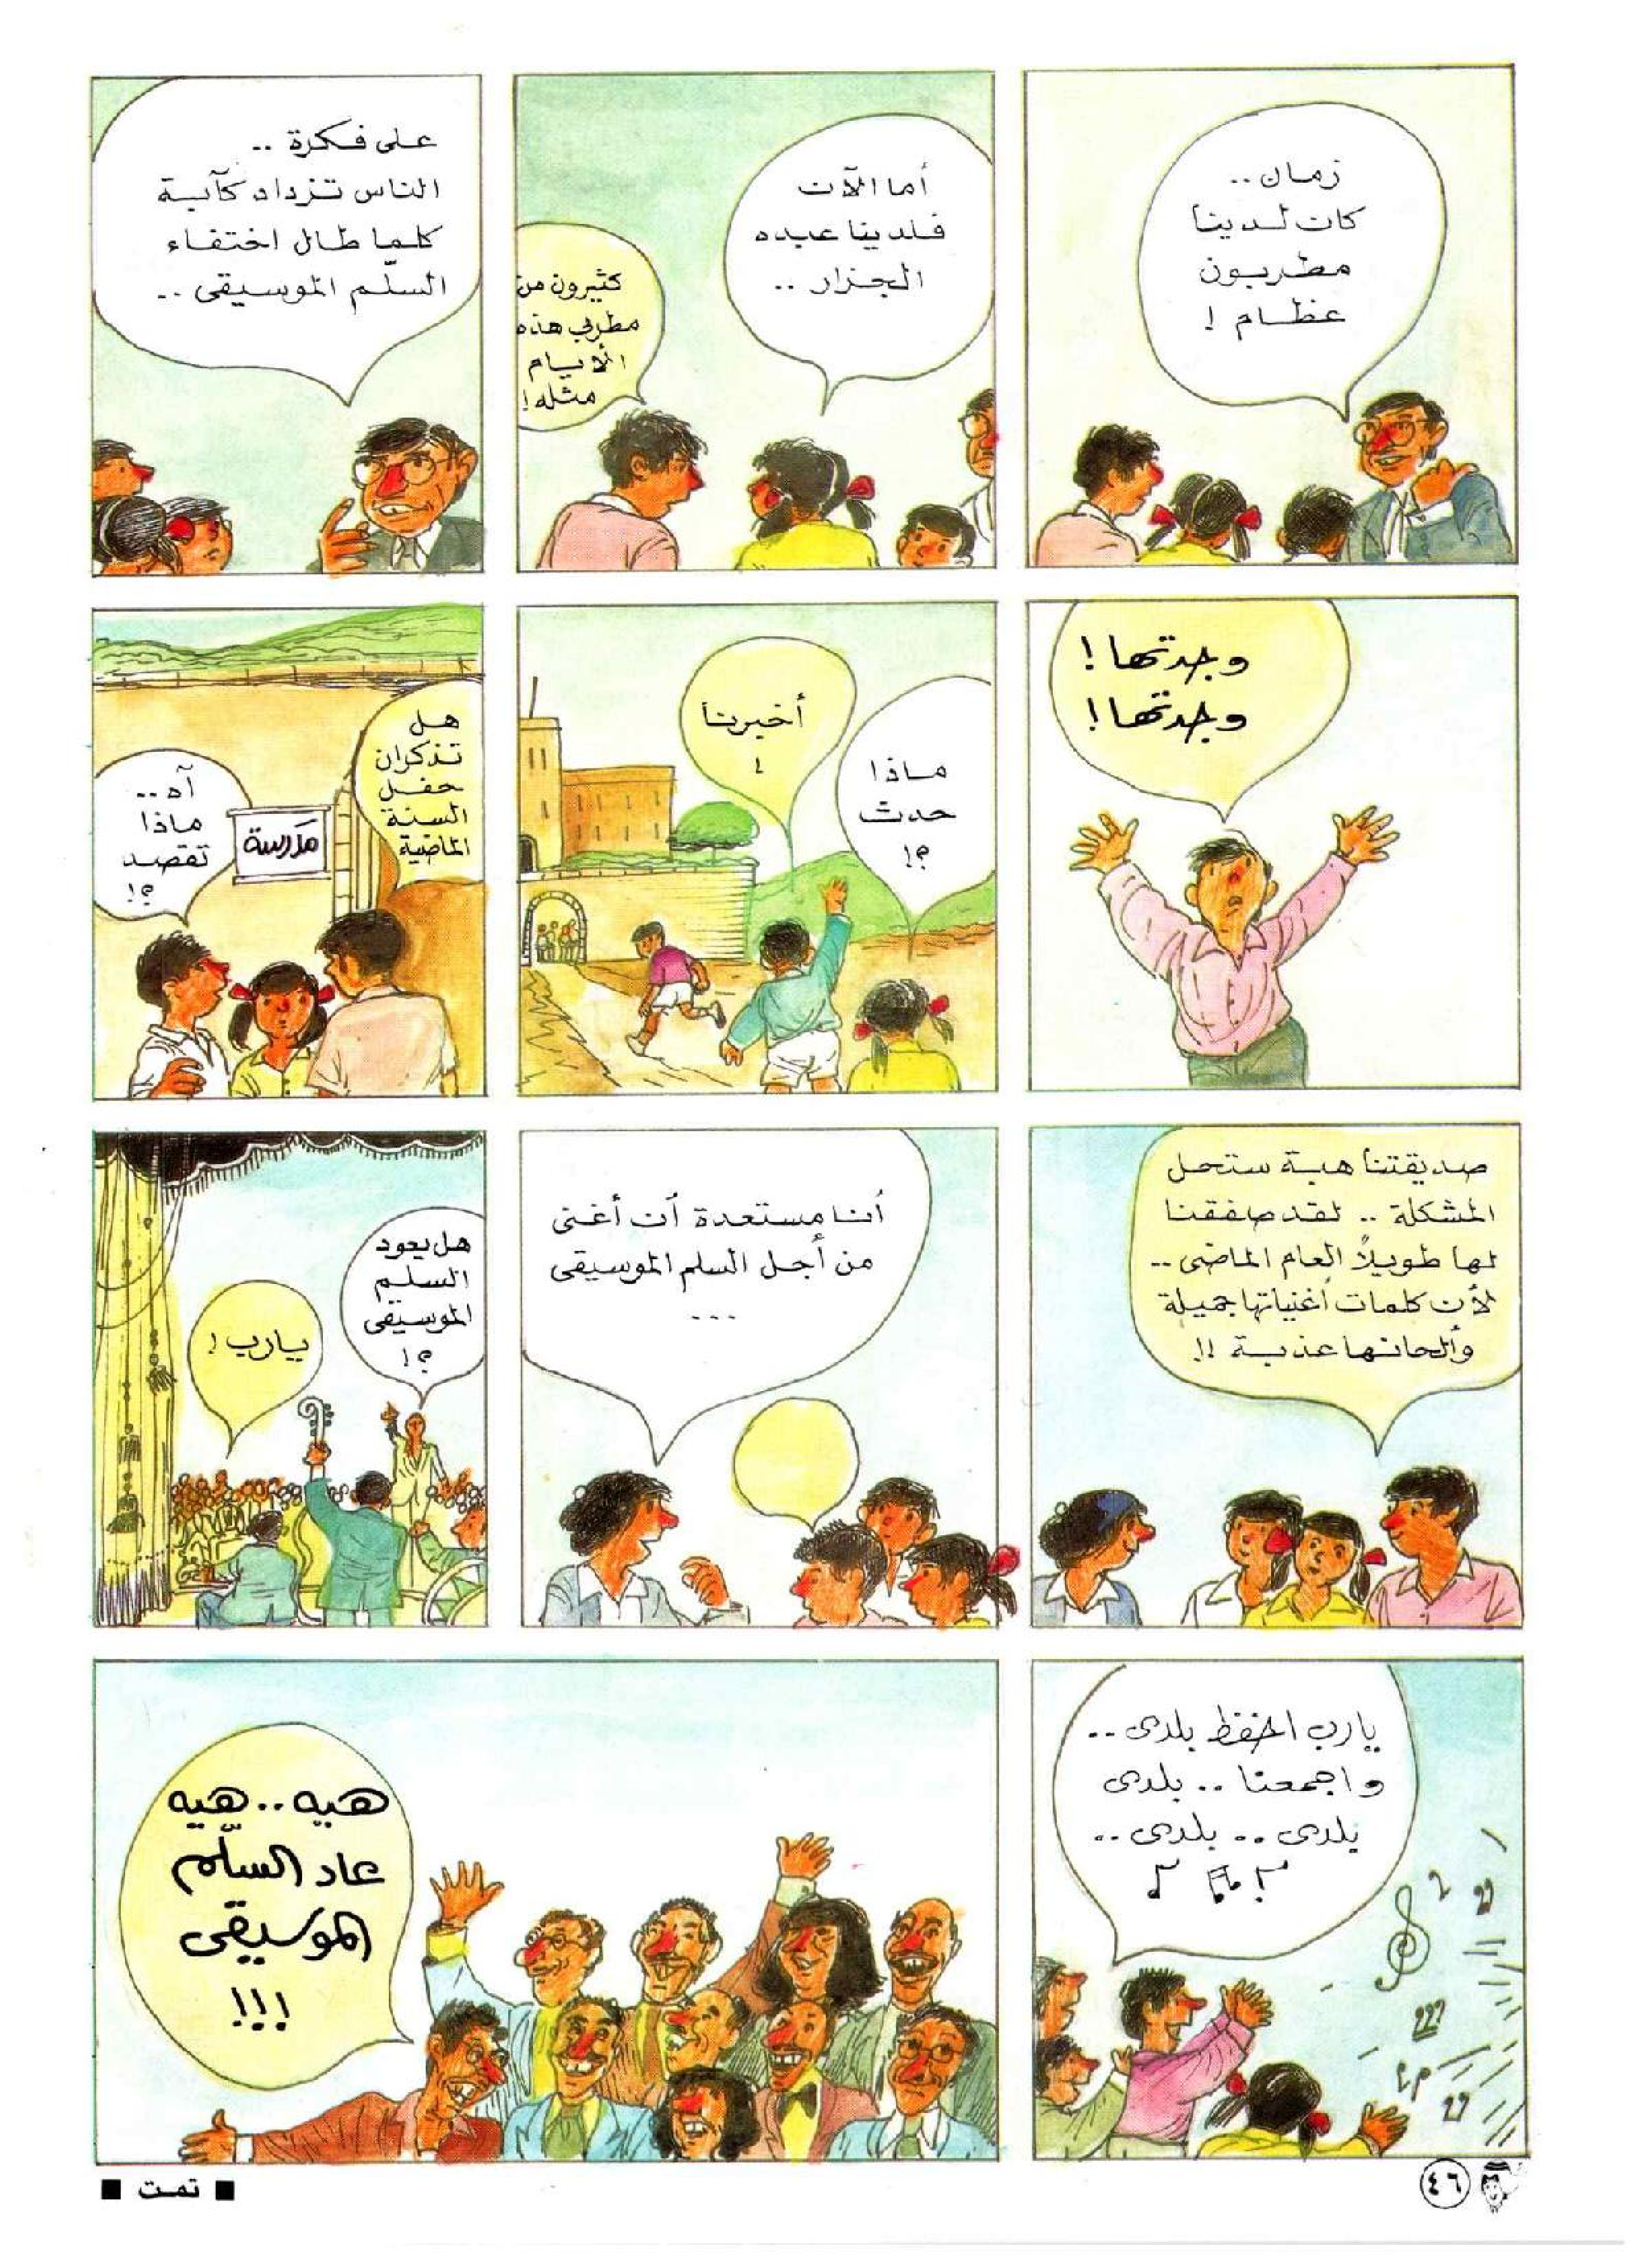 زمان..
كان لدينا
مطربون
عظام !
أما الآن
فلدينا عبده
الجزار ..
كثيرون من
مطربي هذه
الأيام
مثله !
على فكرة ..
الناس تزداد كآبة
كلما طال اختفاء
السلّم الموسيقى ..
وجدتها !
وجدتها !
ماذا
حدث
؟!
أخبرنا
!
هل
تذكران
حفل
السنة
الماضية
آه ..
ماذا
تقصد
؟!
مدرسة
صديقتنا هبة ستحل
المشكلة .. لقد صفقنا
لها طويلاً العام الماضى ..
لأن كلمات أغنياتها جميلة
وألحانها عذبة !!
أنا مستعدة أن أغنى
من أجل السلم الموسيقى
...
هل يعود
السلم
الموسيقى
؟!
يارب !
يارب احفظ بلدى ..
واجمعنا .. بلدى
بلدى .. بلدى ..
هيه .. هيه
عاد السلّم
الموسيقى
!!!
٤٦
■ تمت ■